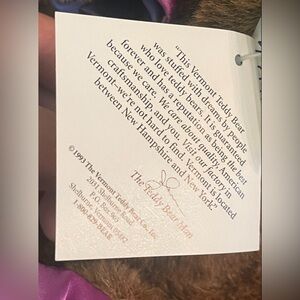 "This Vermont Teddy Bear
was stuffed with dreams by people
who love teddy bears. It is guaranteed
forever and has a reputation as being the best
because we care. We care about quality, American
craftsmanship, and you. Visit our factory in
Vermont–we're not hard to find. Vermont is located
between New Hampshire and New York"
The Teddy Bear Man
© 1993 The Vermont Teddy Bear Co., Inc.
2031 Shelburne Road
P.O. Box 965
Shelburne, Vermont 05482
1-800-829-BEAR